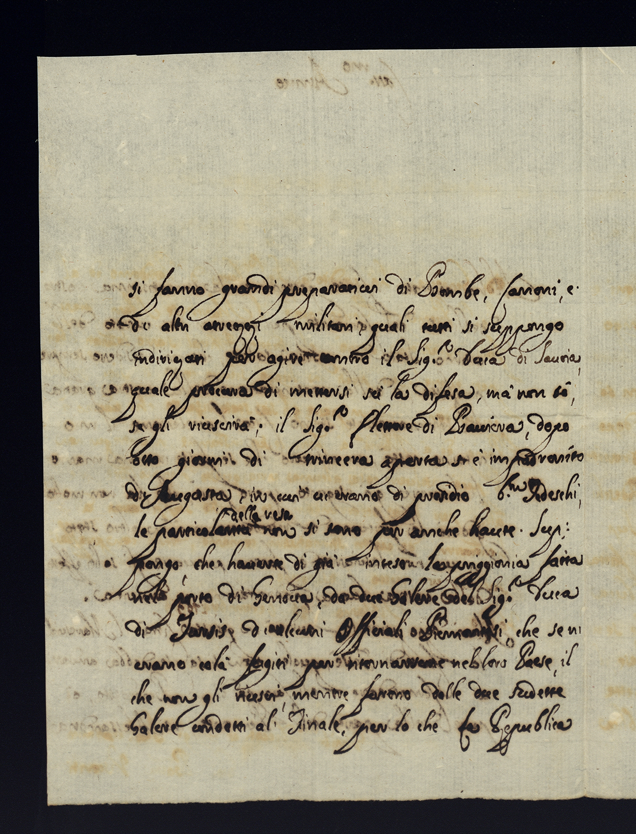 si fanno grandi preparationi di Bombe, Canoni, e
di altri attrezzi militari, quali tutti si suppongo
indirizati per agire contro il Sig.r Duca di Savoia,
quale procura di mettersi su la difesa, ma non so,
se gli riescirà; il Sig.r Elettore di Baviera, dopo
otto giorni di trincera aperta si è impadronito
di Augusta, in cui v'erano di presidio 6.m Tedeschi,
le particolarità della resa non si sono per anche havute. Sup:
pongo che havrete di già inteso la priggionia fatta
nel porto di Genova, da due Galere del Sig.r Duca
di Tursis, d'alcuni Officiali Piemontesi, che se n'
erano colà fugiti per ritornarsene nel loro Paese, il
che non gli riescì, mentre furono dalle due sudette
Galere condotti al Finale, per lo che la Republica